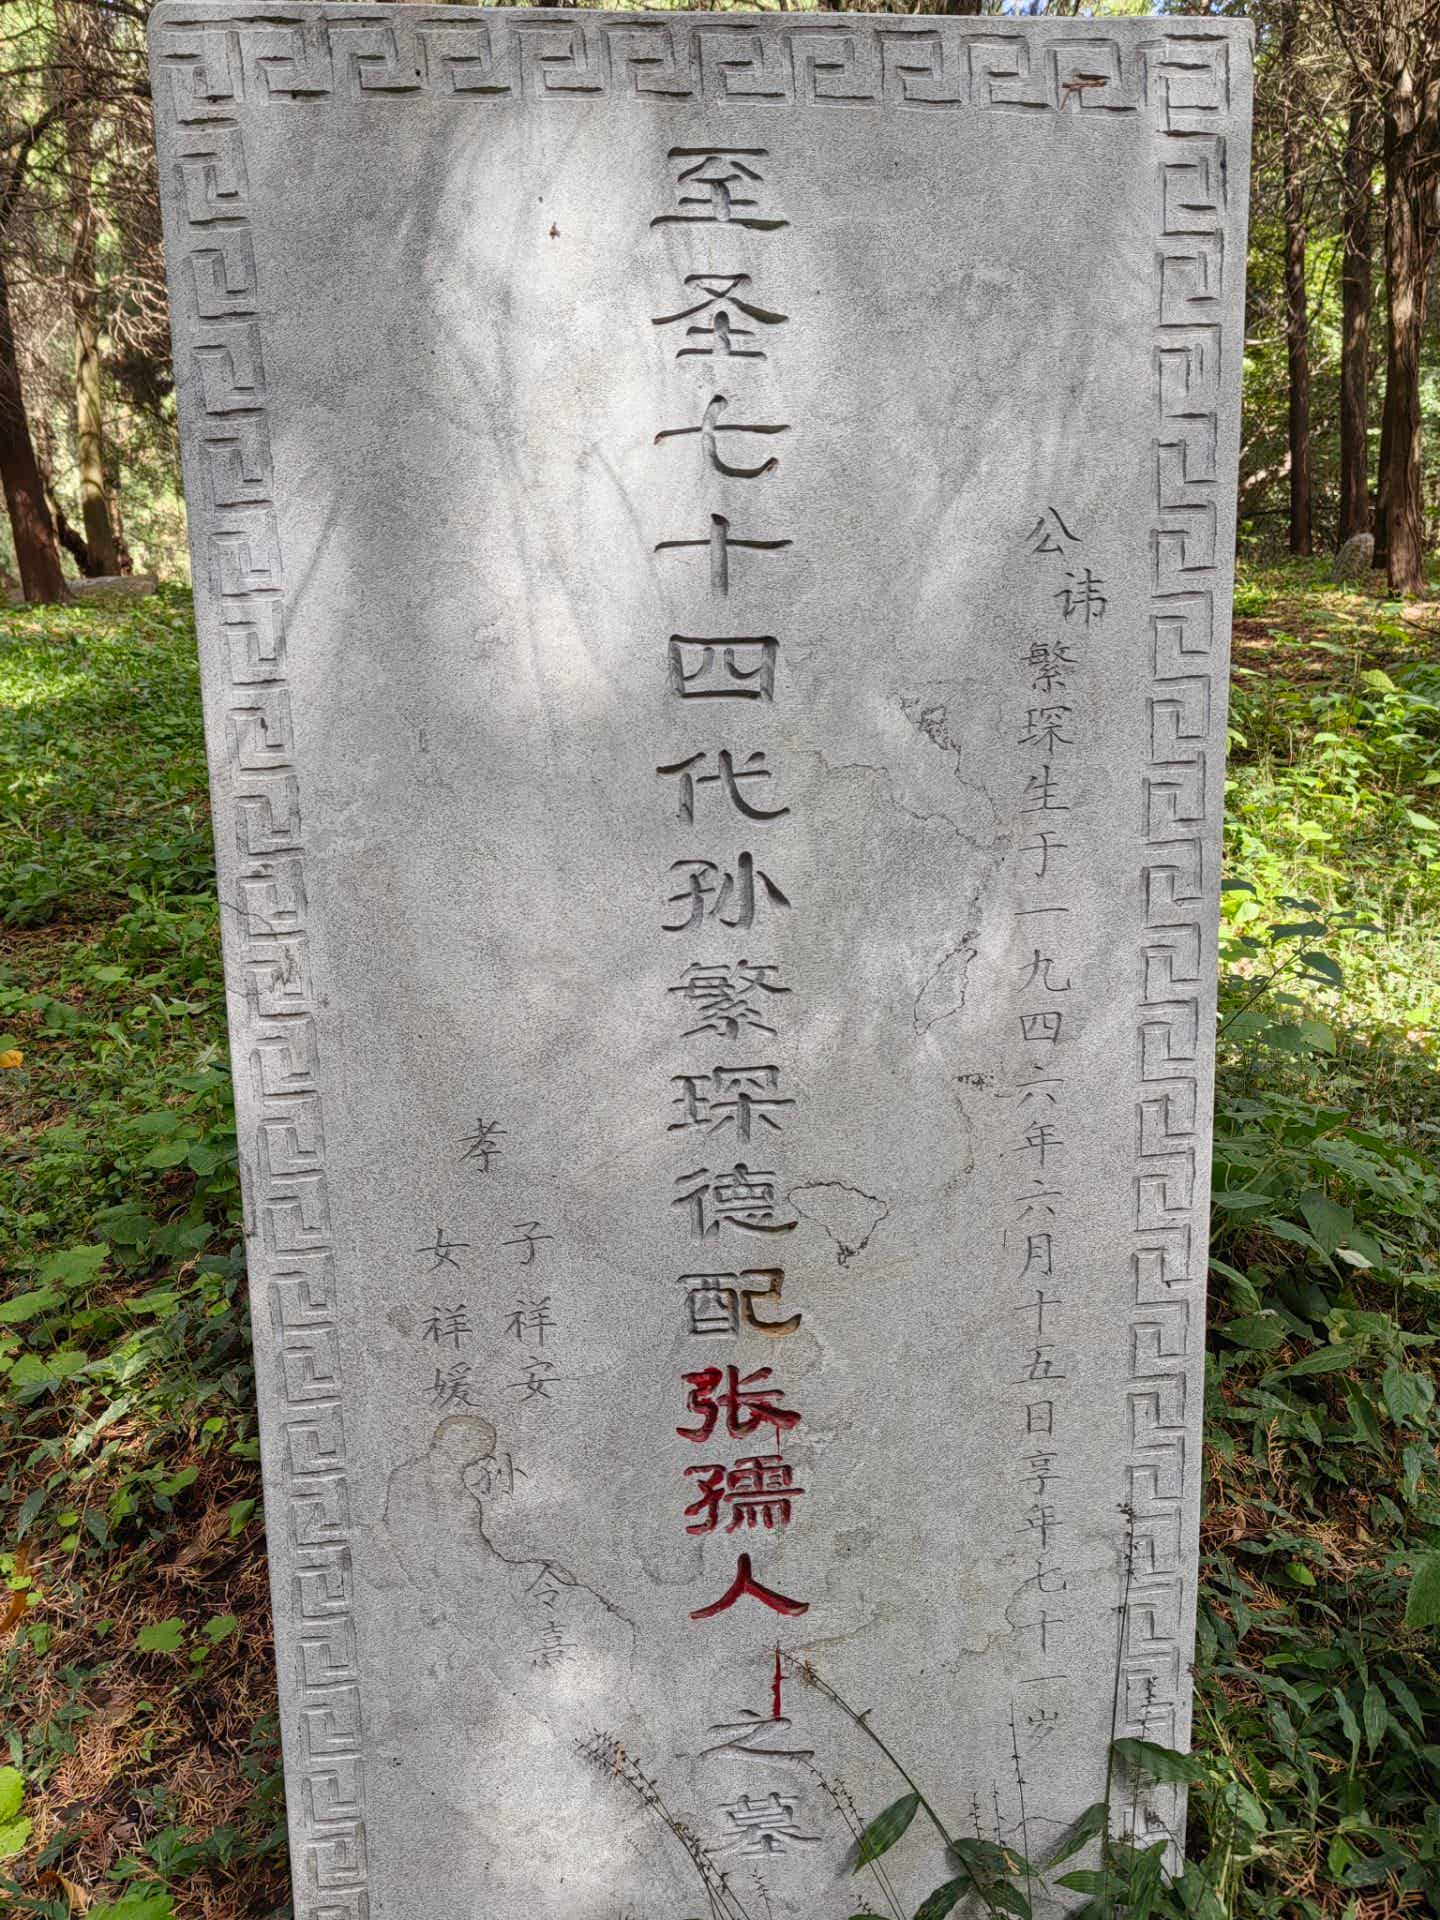 公讳繁琛生于一九四六年六月十五日享年七十一岁
至圣七十四代孙繁琛德配张孺人之墓
孝
子祥安
女祥媛
孙
令嘉